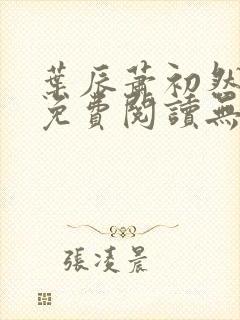 葉辰蕭初然
免費閱讀無
張凌晨